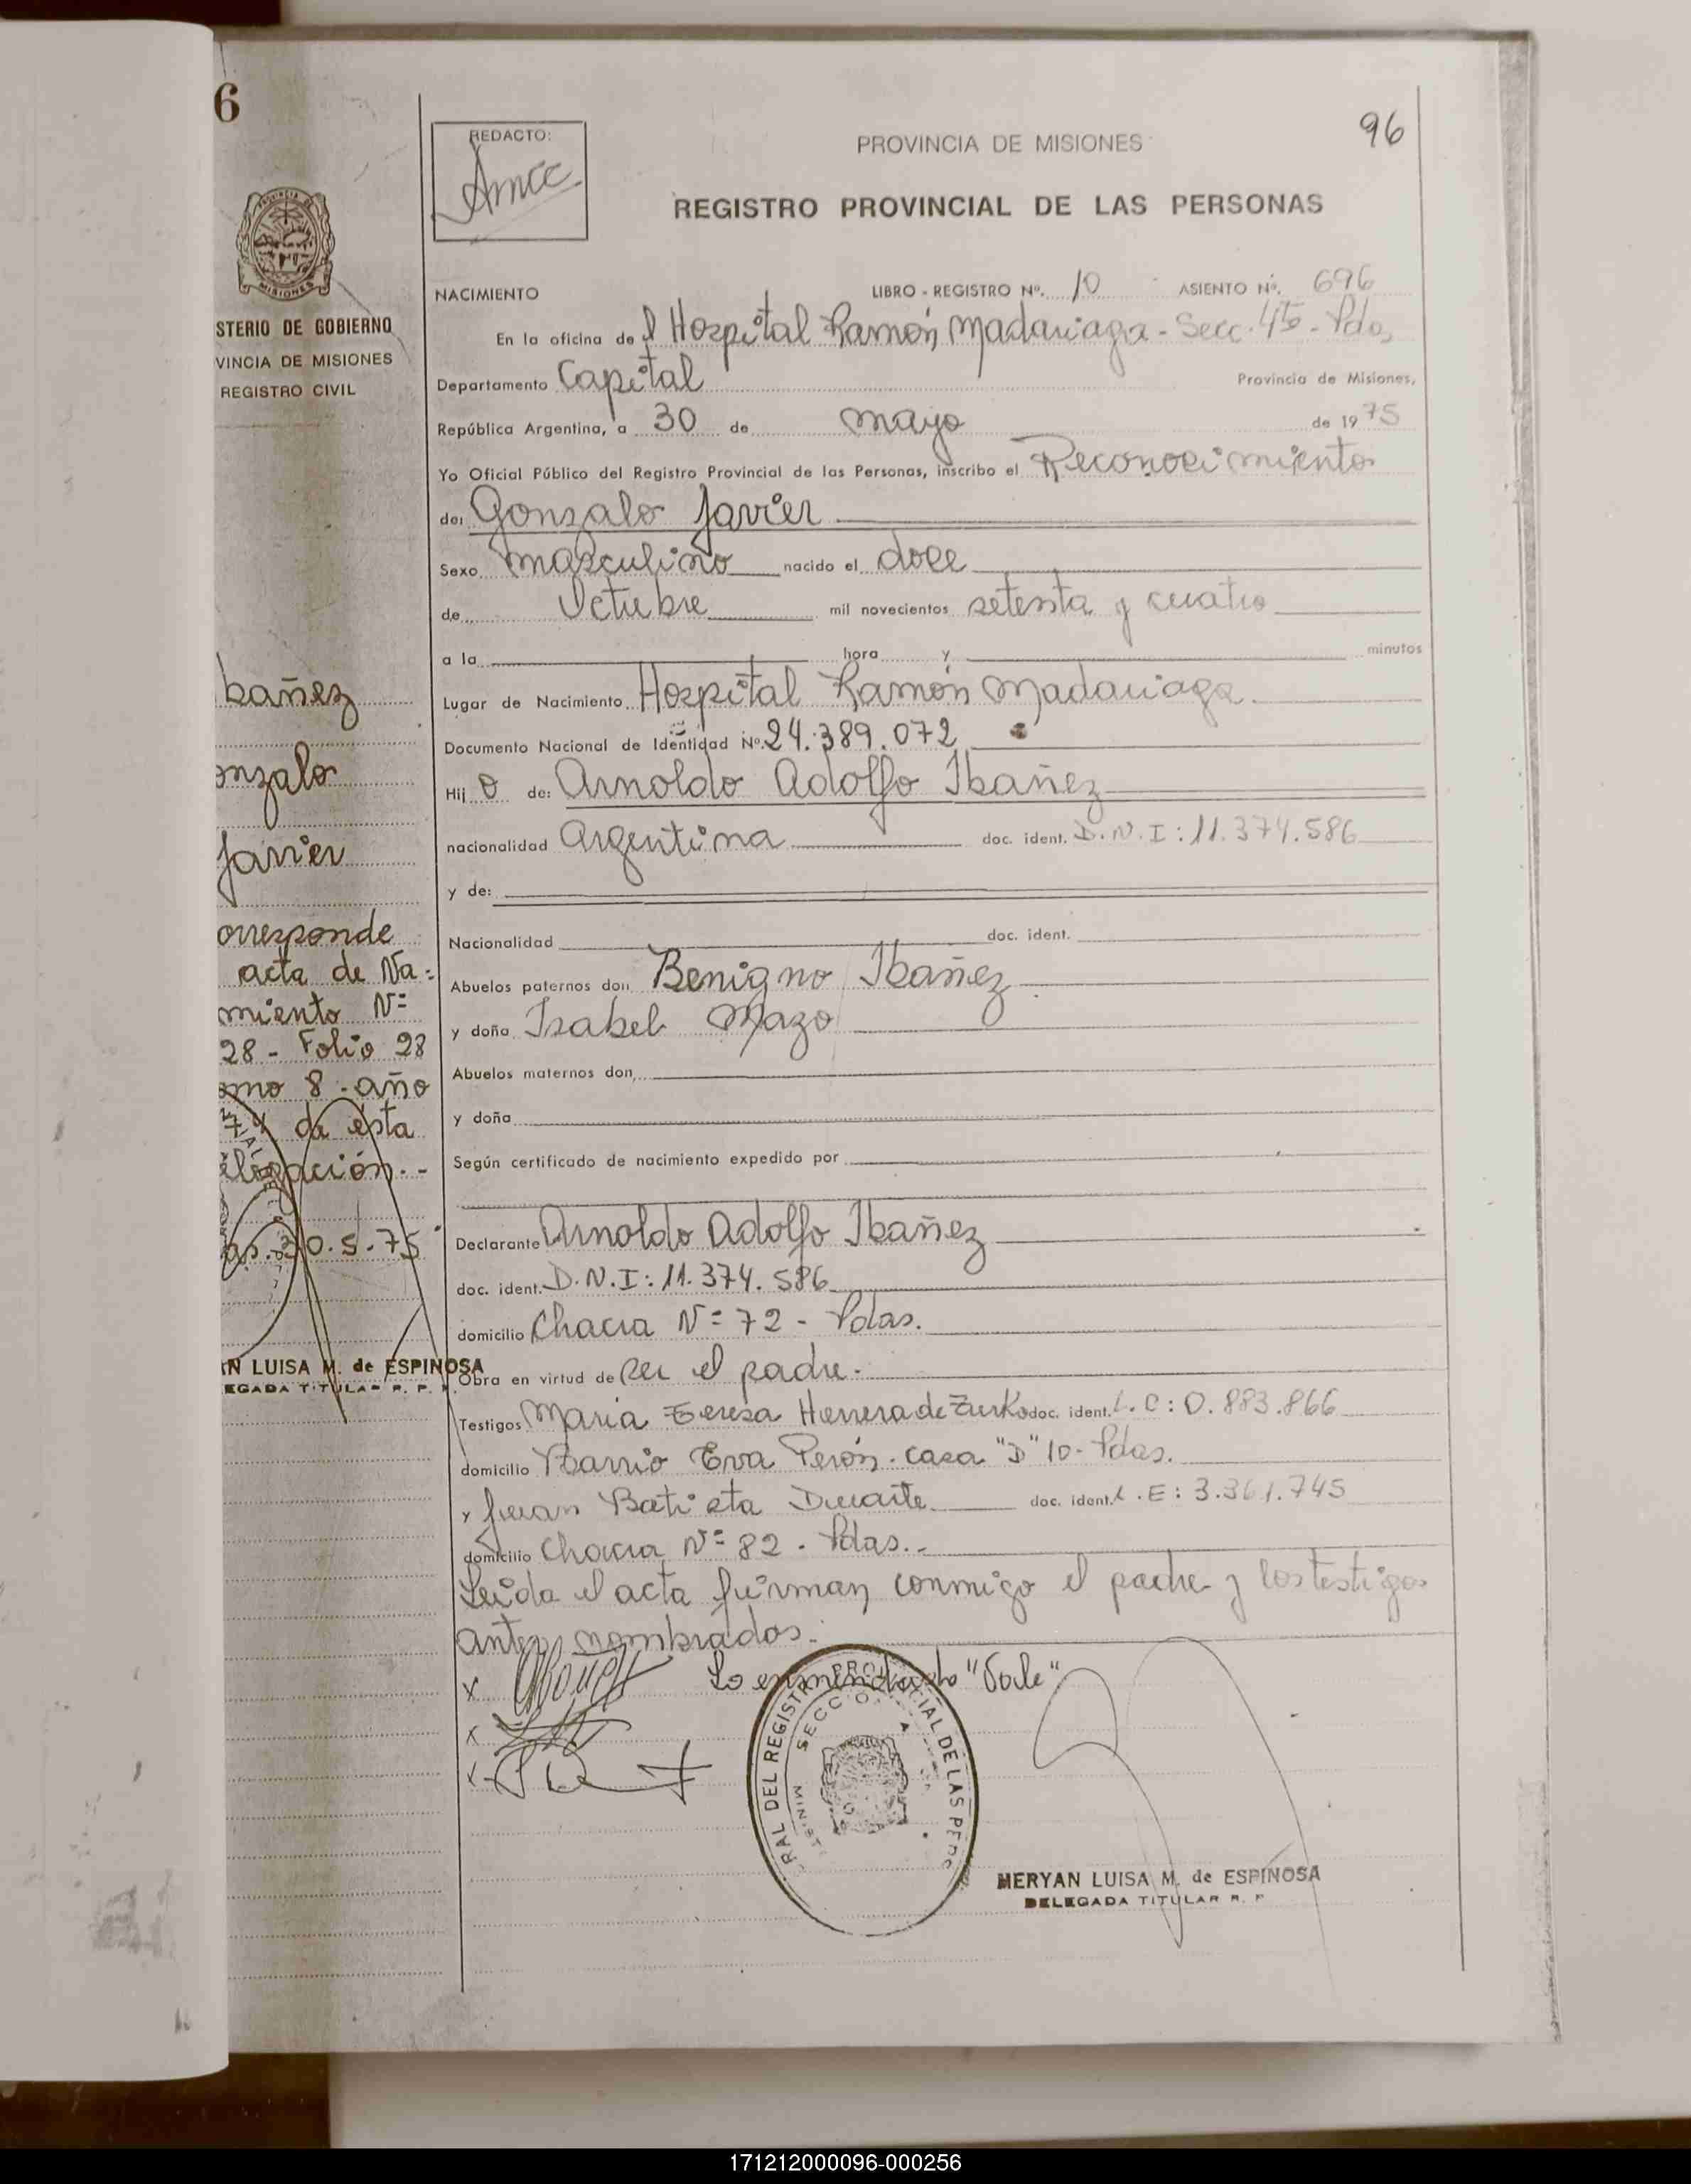 6
STERIO DE GOBIERNO
VINCIA DE MISIONES
REGISTRO CIVIL
bañez
onzalo
Javier
orresponde
acta de Na=
miento Nº
28 - Folio 28
omo 8 - año
74 da esta
elegación.-
as. 30.5.75
AN LUISA M. de ESPINOSA
EGADA TITULAR R. P.
REDACTO:
PROVINCIA DE MISIONES
96
REGISTRO PROVINCIAL DE LAS PERSONAS
NACIMIENTO LIBRO - REGISTRO Nº. 10 ASIENTO Nº. 696
En la oficina de l Hospital Ramón Madariaga - Secc. 4ta - Pdas
Departamento Capital Provincia de Misiones,
República Argentina, a 30 de mayo de 1975
Yo Oficial Público del Registro Provincial de las Personas, inscribo el Reconocimiento
de: Gonzalo Javier
Sexo masculino nacido el doce
de Octubre mil novecientos setenta y cuatro
a la hora y minutos
Lugar de Nacimiento Hospital Ramón Madariaga
Documento Nacional de Identidad Nº 24.389.072
Hij o de: Arnoldo Adolfo Ibañez
nacionalidad Argentina doc. ident. D.N.I: 11.374.586
y de:
Nacionalidad doc. ident.
Abuelos paternos don Benigno Ibañez
y doña Isabel Mazo
Abuelos maternos don
y doña
Según certificado de nacimiento expedido por
Declarante Arnoldo Adolfo Ibañez
doc. ident. D.N.I: 11.374.586
domicilio Chacra Nº 72 - Pdas.
Obra en virtud de ser el padre.
Testigos Maria Teresa Herrera de Zurko doc. ident. L.C: 0.883.866
domicilio Barrio Eva Perón. casa "D" 10 - Pdas.
y Juan Batista Duarte doc. ident. L.E: 3.361.745
domicilio Chacra Nº 82 . Pdas.-
Leida el acta firman conmigo el padre y los testigos
antes nombrados.
Lo enmendado "Vale"
RAL DEL REGISTRO PROVINCIAL DE LAS PERS
SECCIO
MERYAN LUISA M. de ESPINOSA
DELEGADA TITULAR R. P
171212000096-000256